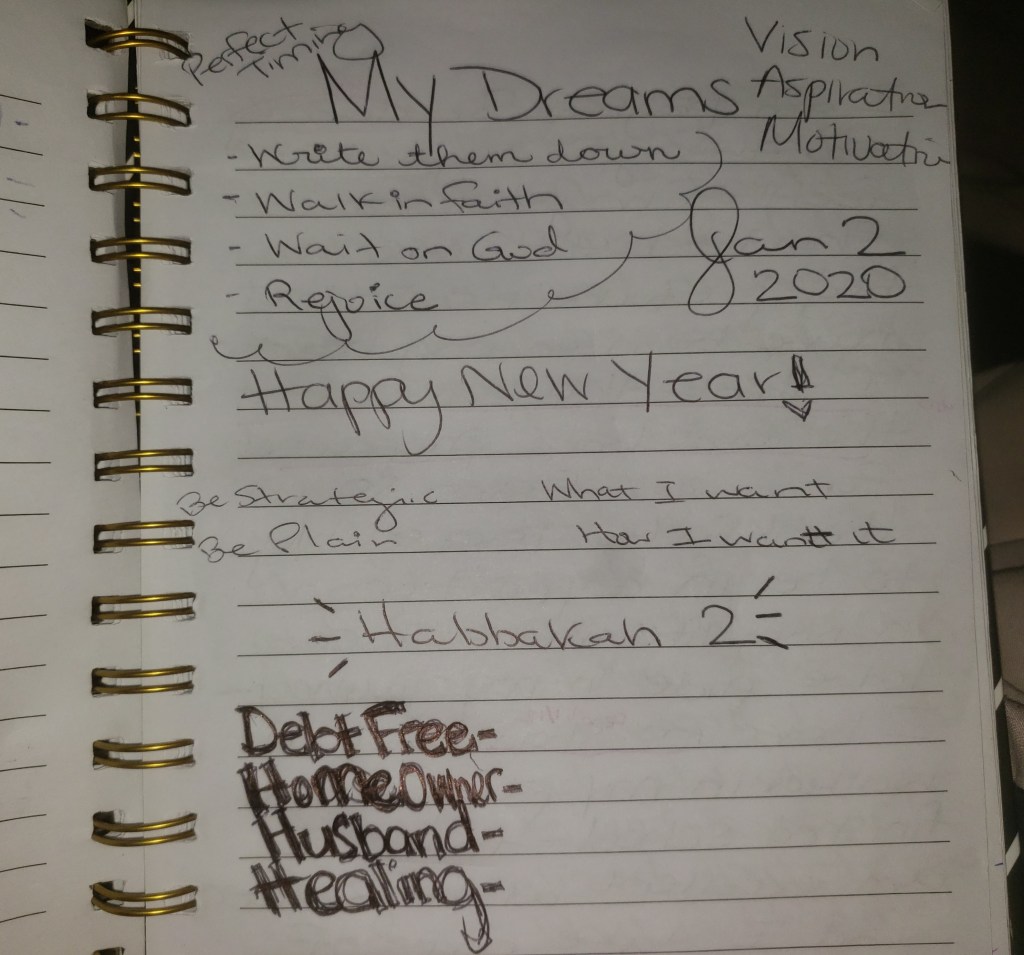 Perfect
Timing
My Dreams
Vision
Aspiration
Motivation
- Write them down
- Walk in faith
- Wait on God
- Rejoice
Jan 2
2020
Happy New Year!
Be Strategic
What I want
Be Plain
How I want it
Habbakah 2
Debt Free-
Home Owner-
Husband-
Healing-